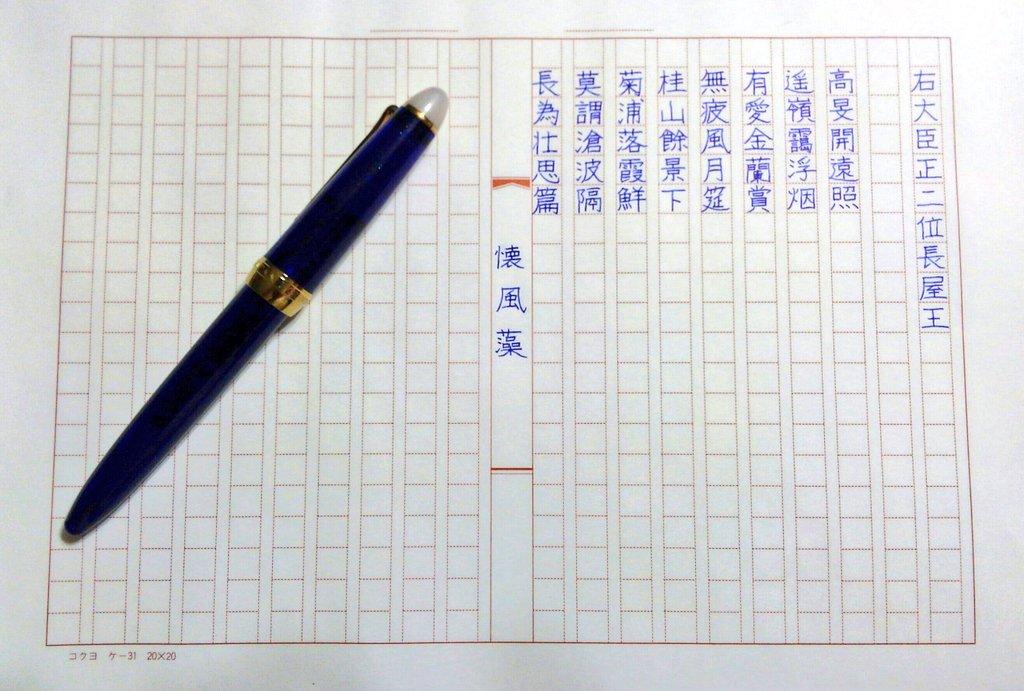 右大臣正二位長屋王
高旻開遠照
遥嶺靄浮烟
有愛金蘭賞
無疲風月筵
桂山餘景下
菊浦落霞鮮
莫謂滄波隔
長為壮思篇
懐風藻
コクヨ ケー31 20×20